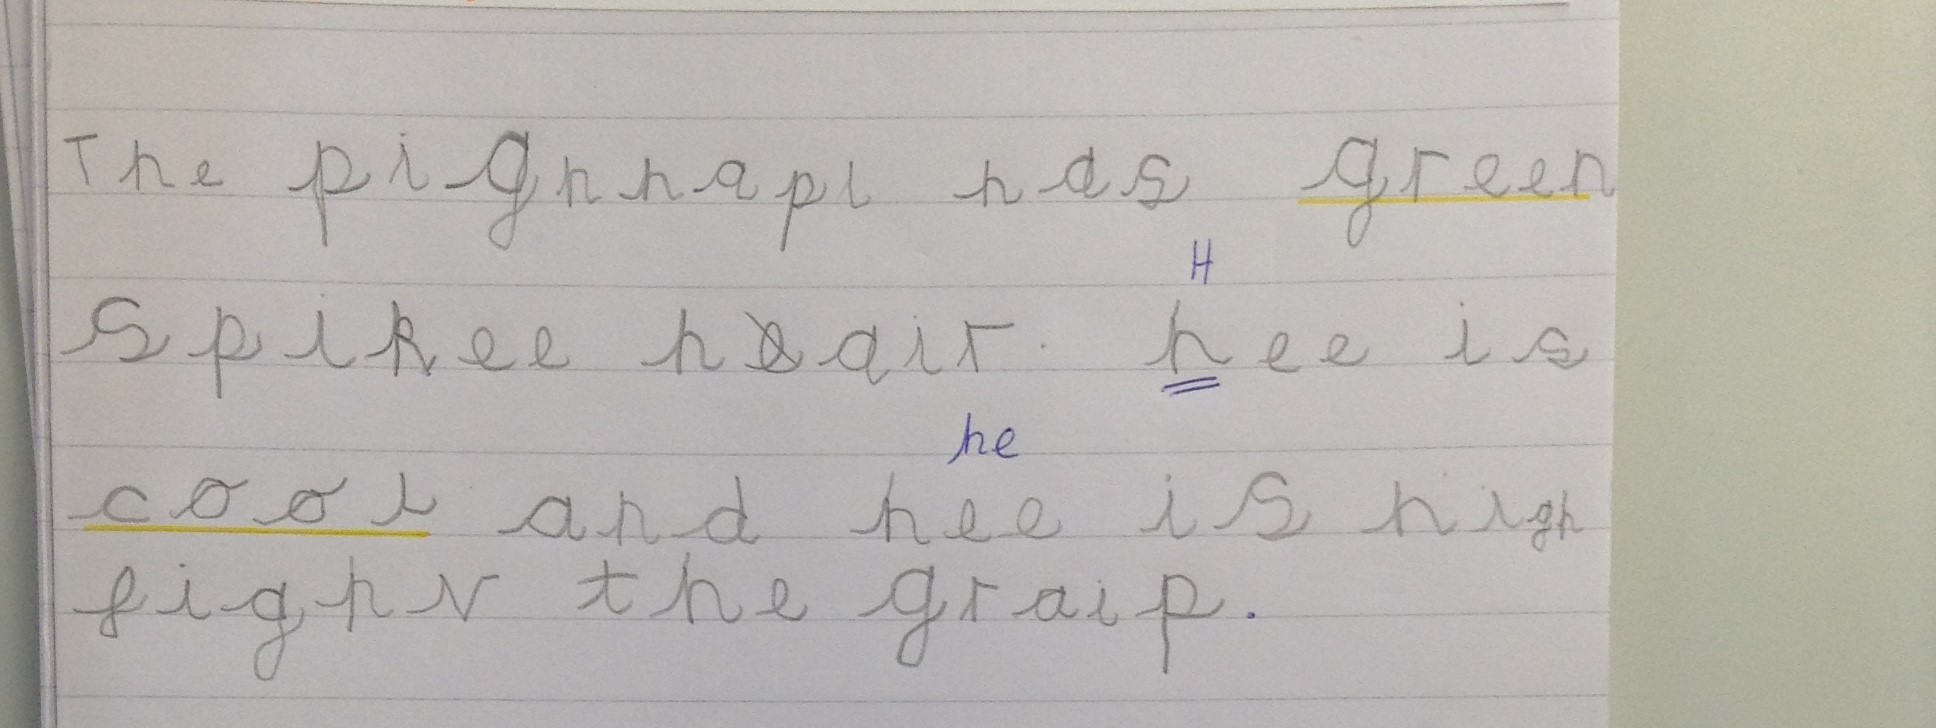 The pighnapl has green
H
spikee hair. hee is
he
cool and hee is high
fighv the graip.